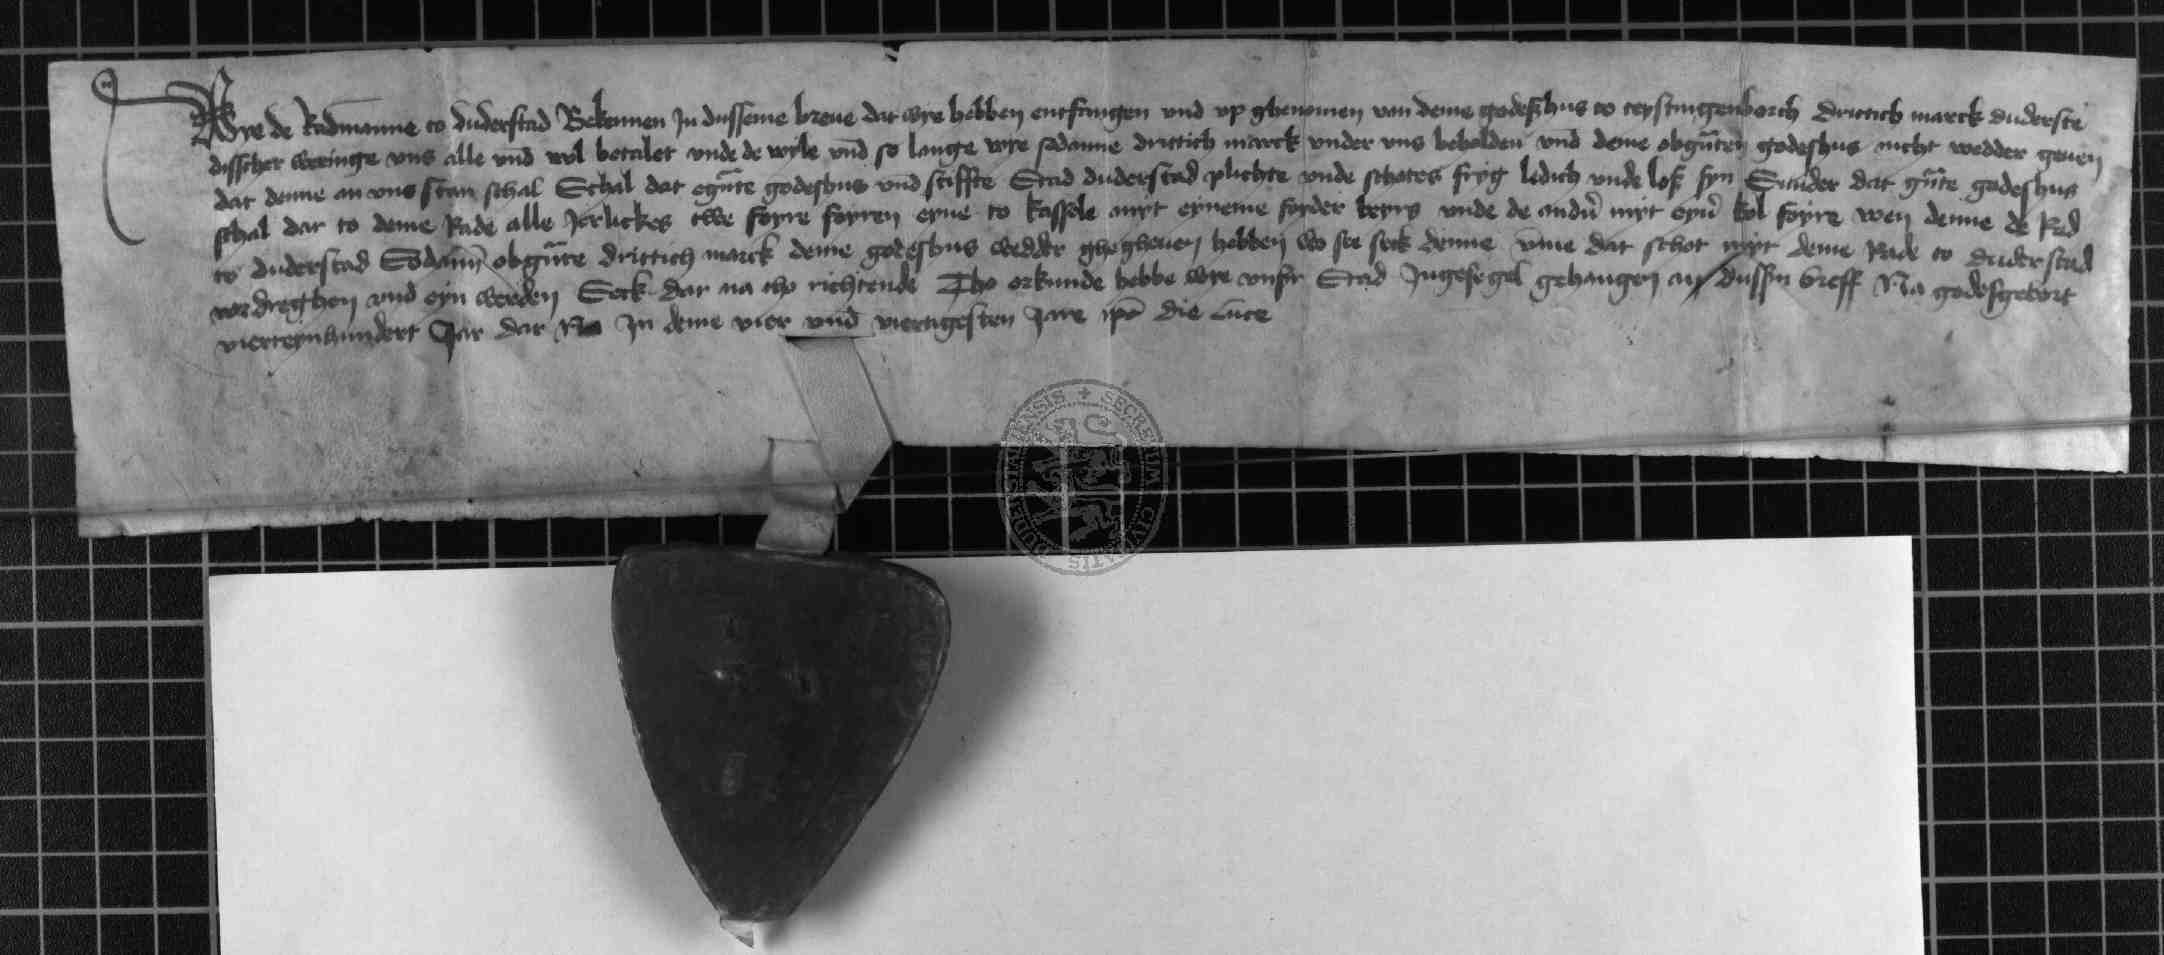 Wye de Radmanne to duderstad Bekennen In dusseme breue dat wye hebben entfangen vnd vp ghenomen van deme godeshus to teystingenborch drittich marck duderste
disscher weringe vns alle vnd wol betalet vnde de wyle vnd so lange wye sodanne drittich marck vnder vns beholden vnd deme obgñten godeshus nicht wedder geuen
dat denne an vns stan schal Schal dat egñte godeshus vnd stiffte Stad duderstad plichte vnde schotes fryg ledich vnde loß syn Sunder dat gñte godeshus
schal dar to deme Rade alle Jerlickes twe foyre foyren eyne to Kassele myt eyneme foyder beyrs vnde de andn̄ myt eyn̄ kol foyre wen denne de Rad
to duderstad Sodann̄ obgñte drittich marck deme godeshus wedder ghegheuen hebben wo see seck denne vm̄e dat schot myt deme Rade to duderstad
vordreghen vnd eyn werden Seck dar na tho richtende Tho orkunde hebbe wye vnser Stad Ingesegel gehangen an dussen breff Na godesgebort
vierteynhundert Jar dar Na In deme vier vnd viertigesten Jare ipō die Luce
SECRETUM CIVITATIS DUDERSTADENSIS